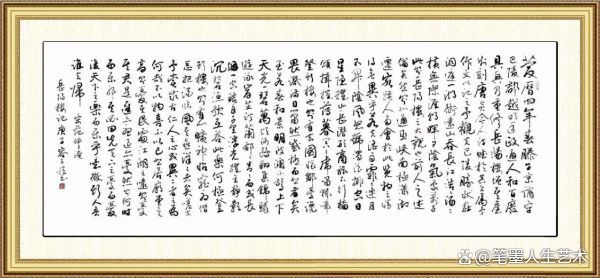 慶曆四年春滕子京謫守
巴陵郡越明年政通人和百廢
具興乃重修岳陽樓增其舊
制刻唐賢今人詩賦於其上屬予
作文以記之予觀夫巴陵勝狀在
洞庭一湖銜遠山吞長江浩浩湯
湯橫無際涯朝暉夕陰氣象萬千
此則岳陽樓之大觀也前人之述
備矣然則北通巫峽南極瀟湘
遷客騷人多會於此覽物之情
得無異乎若夫霪雨霏霏連月
不開陰風怒號濁浪排空日
星隱耀山岳潛形商旅不行檣
傾楫摧薄暮冥冥虎嘯猿啼
登斯樓也則有去國懷鄉憂讒
畏譏滿目蕭然感極而悲者矣
至若春和景明波瀾不驚上下
天光一碧萬頃沙鷗翔集錦鱗
游泳岸芷汀蘭郁郁青青而或長
煙一空皓月千里浮光躍金靜影
沉璧漁歌互答此樂何極登
斯樓也則有心曠神怡寵辱偕
忘把酒臨風其喜洋洋者矣嗟夫
予嘗求古仁人之心或異二者之為
何哉不以物喜不以己悲居廟堂之
高則憂其民處江湖之遠則憂
其君是進亦憂退亦憂然則何時
而樂耶其必曰先天下之憂而憂
後天下之樂而樂乎噫微斯人吾
誰與歸 宋范仲淹
岳陽樓記
笔墨人生艺术